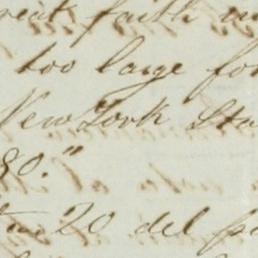 great faith in
too large for
New York Sta
80."
20 del